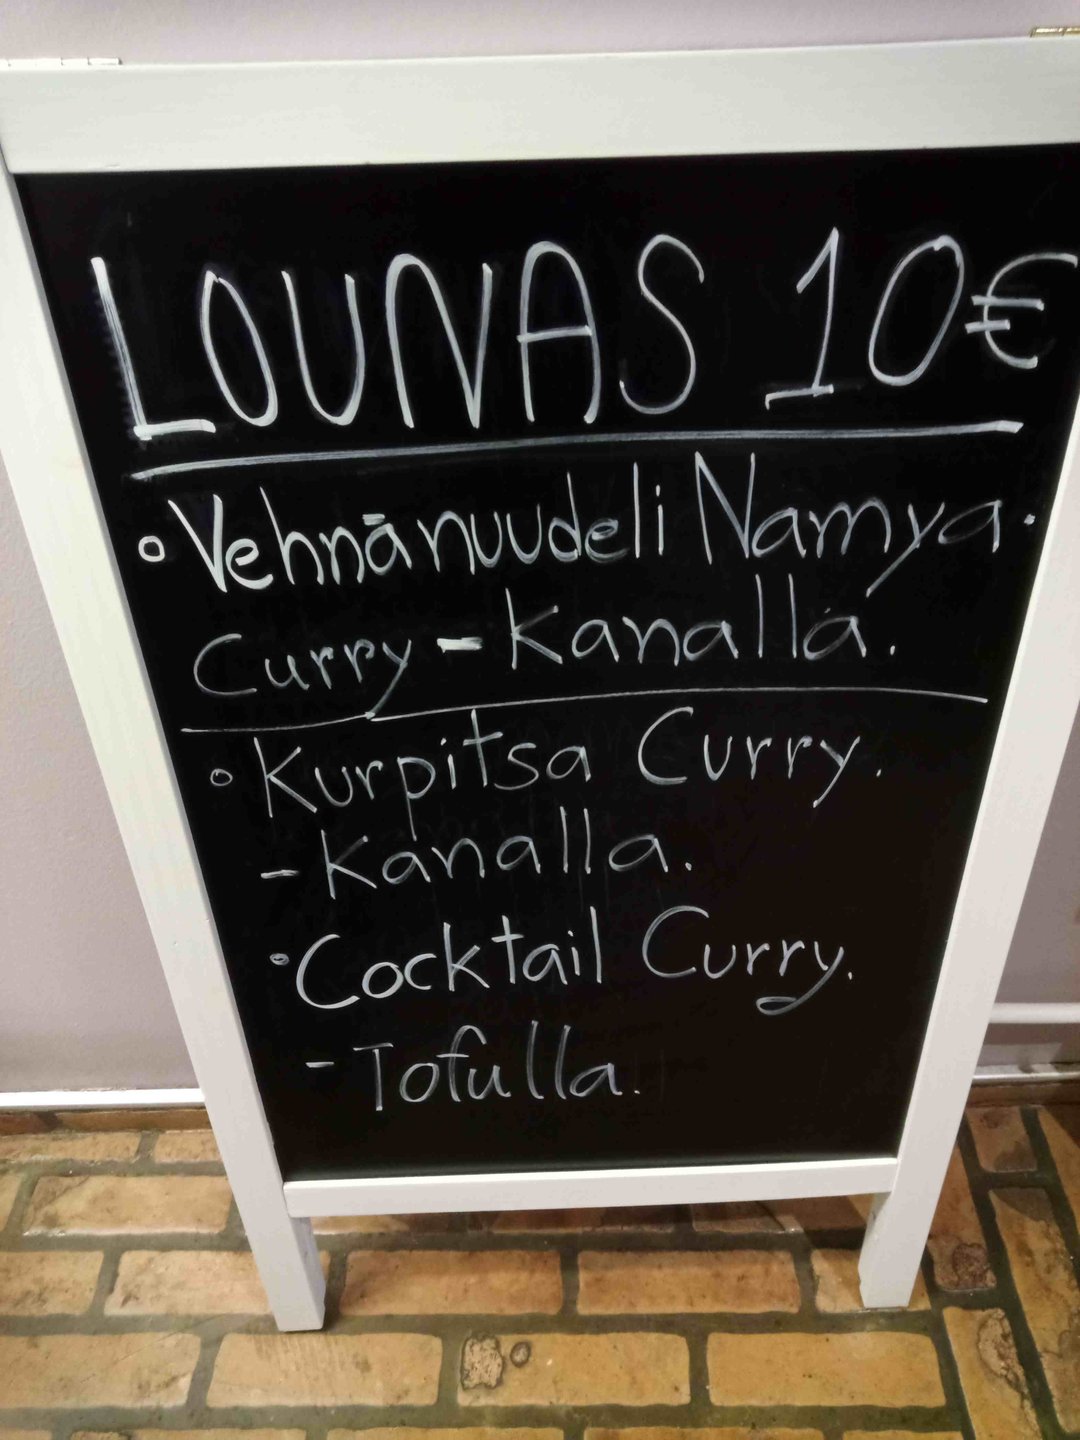 LOUNAS 10€
Vehnänuudeli Namya.
Curry - Kanalla.
Kurpitsa Curry.
- Kanalla.
Cocktail Curry.
- Tofulla.